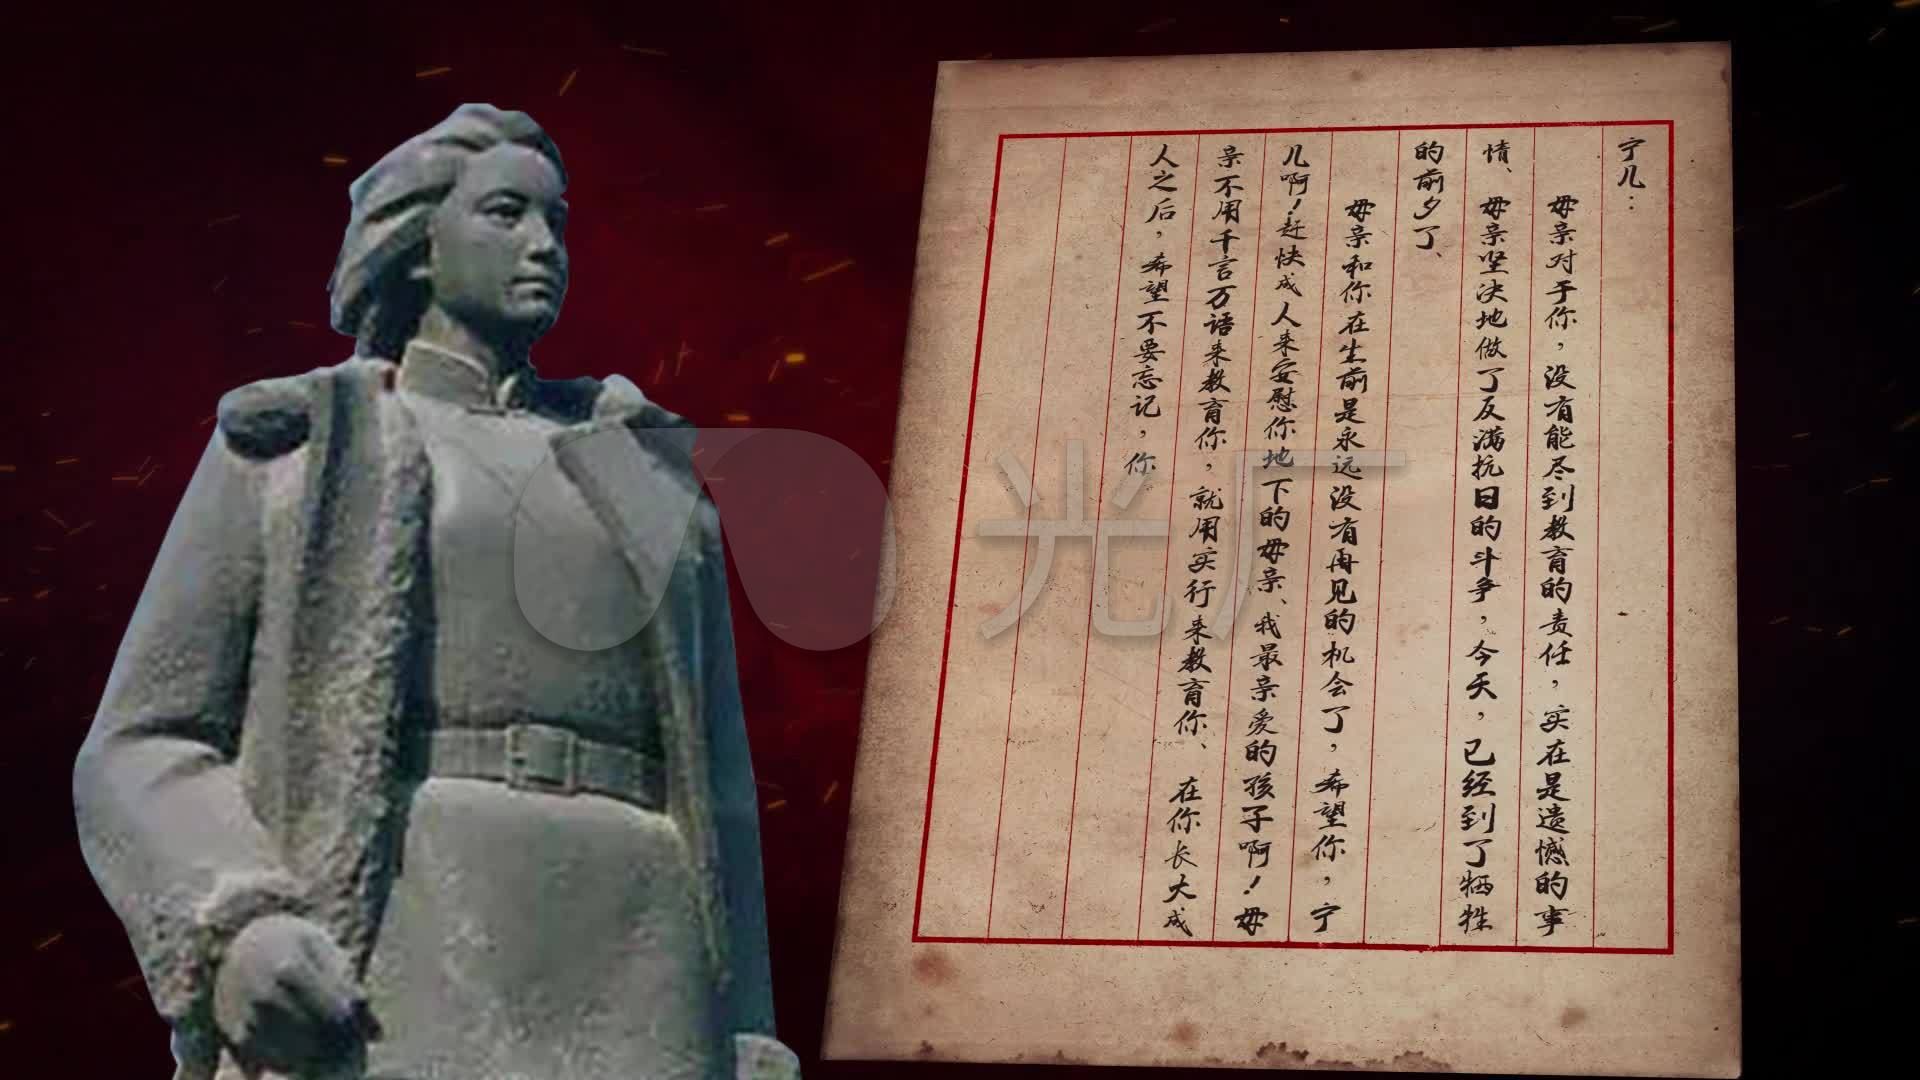 宁儿：
母亲对于你，没有能尽到教育的责任，实在是遗憾的事
情、母亲坚决地做了反满抗日的斗争，今天，已经到了牺牲
的前夕了、
母亲和你在生前是永远没有再见的机会了，希望你，宁
儿啊！赶快成人来安慰你地下的母亲、我最亲爱的孩子啊！母
亲不用千言万语来教育你，就用实行来教育你、在你长大成
人之后，希望不要忘记，你
光厂